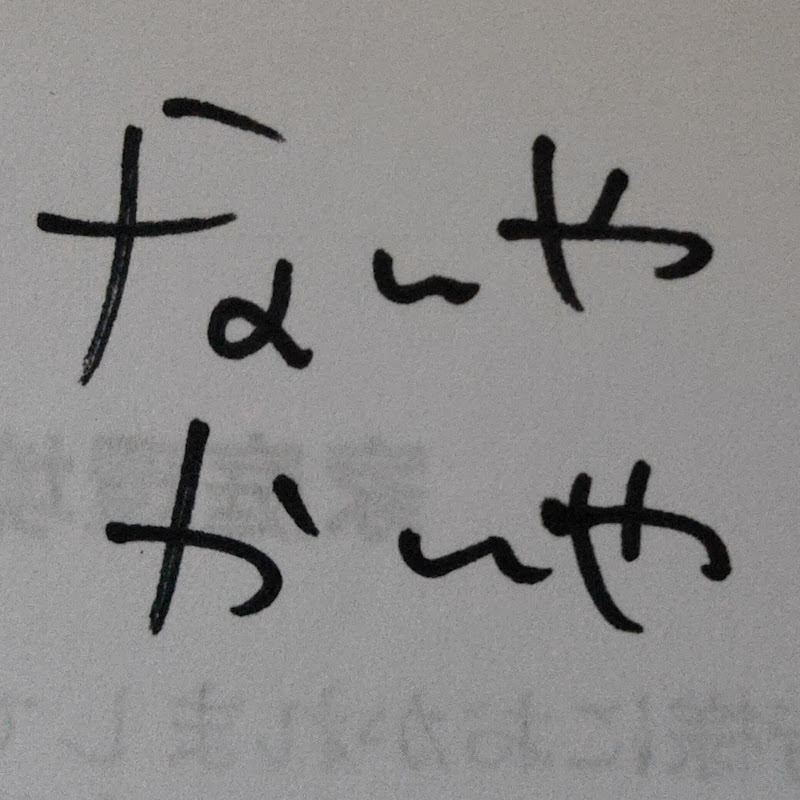 ないや
かいや